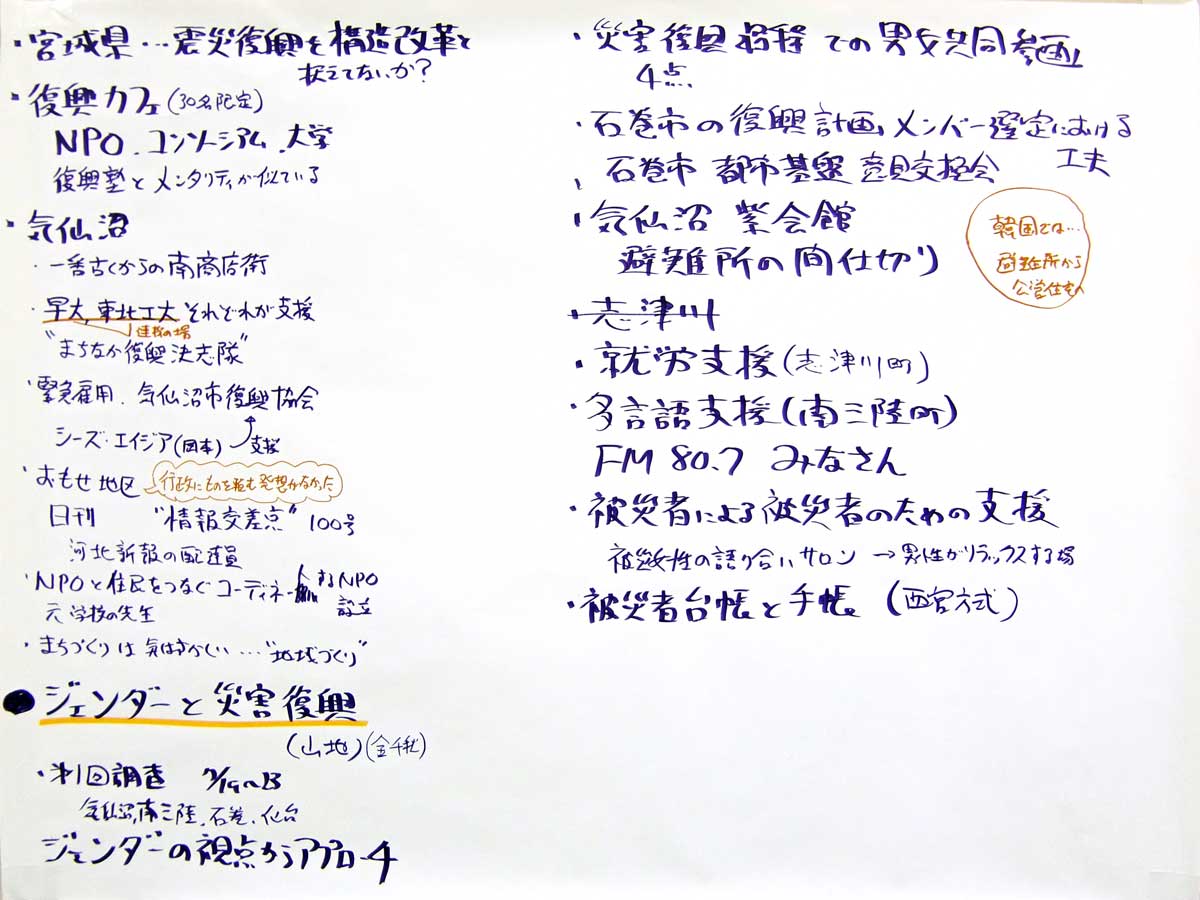 ・宮城県…震災復興を構造改革と
捉えてないか?
・復興カフェ(30名限定)
NPO.コンソーシアム.大学
復興塾とメンタリティが似ている
・気仙沼
・一番古くからの南商店街
・早大,東北工大 それぞれが支援
連携の場
"まちなか復興決志隊"
・緊急雇用.気仙沼市復興協会
シーズ・エイジア(岡本) 支援
・おもせ地区
行政にものを頼む発想がなかった
日刊 "情報交差点" 100号
河北新報の配達員
・NPOと住民をつなぐコーディネートするNPO
元学校の先生 設立
・まちづくりは気はずかしい…"地域づくり"
●ジェンダーと災害復興
(山地)(金千秋)
・第1回調査
気仙沼,南三陸.石巻.仙台
ジェンダーの視点からアプローチ
・災害復興過程での男女共同参画
4点
・石巻市の復興計画メンバー選定における
工夫
石巻市 都市基盤 意見交換会
・気仙沼 紫会館
避難所の間仕切り
韓国では…
避難所から
公営住宅へ
・志津川
・就労支援(志津川町)
・多言語支援(南三陸町)
FM 80.7 みなさん
・被災者による被災者のための支援
被災女性の語り合いサロン → 男性がリラックスする場
・被災者台帳と手帳 (西宮方式)